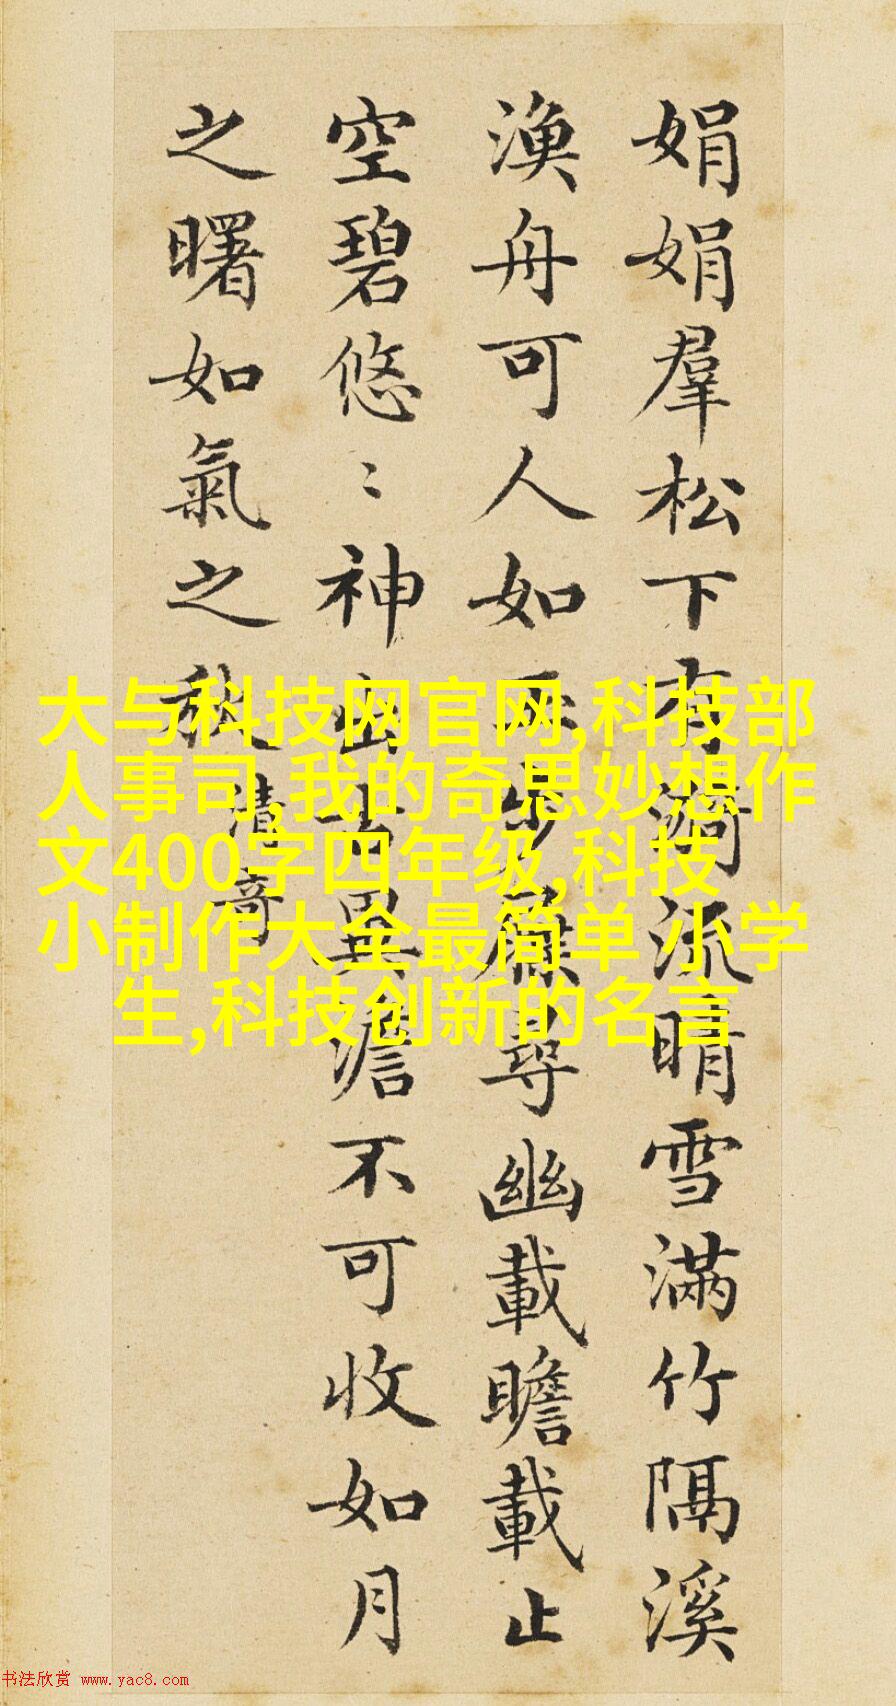 娟娟羣松下有漪流晴雪滿竹隔溪
漁舟可人如玉步屧尋幽載瞻載止
空碧悠〻神出古異澹不可收如月
之曙如氣之秋
清奇
大与科技网官网,科技部
人事司,我的奇思妙想作
文400字四年级,科技
小制作大全最简单 小学
生,科技创新的名言
书法欣赏 www.yac8.com